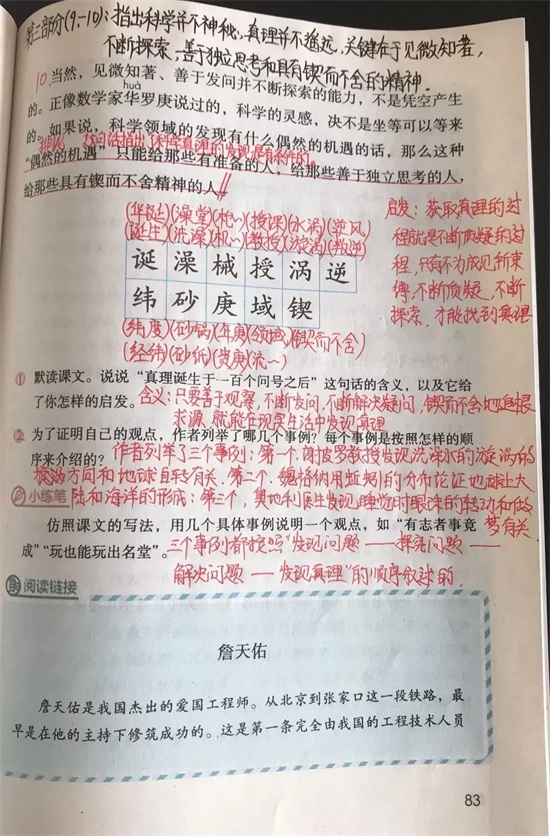 第三部分(9-10):指出科学并不神秘,真理并不遥远,关键在于见微知著,
不断探索,善于独立思考和具有锲而不舍的精神.
10 当然,见微知著、善于发问并不断探索的能力,不是凭空产生
huà
的。正像数学家华罗庚说过的,科学的灵感,决不是坐等可以等来
的。如果说,科学领域的发现有什么偶然的机遇的话,那么这种
这句话指出,科学真理的发现是有条件的。
“偶然的机遇”只能给那些有准备的人,给那些善于独立思考的人,
给那些具有锲而不舍精神的人。
(华诞)(澡堂)(机~)(授课)(水涡)(逆风)
(诞生)(洗澡)(机~)(教授)(漩涡)(叛逆)
诞 澡 械 授 涡 逆
纬 砂 庚 域 锲
(纬度)(砂锅)(年庚)(领域)(锲而不舍)
(经纬)(砂纸)(贵庚)(流~)
启发:获取真理的过
程就是不断质疑的过
程,只有不为成见所束
缚,不断质疑,不断
探索,才能找到真理
① 默读课文。说说“真理诞生于一百个问号之后”这句话的含义,以及它给
了你怎样的启发。含义:只要善于观察,不断发问,不断解决疑问,锲而不舍地追根
求源,就能在现实生活中发现真理
② 为了证明自己的观点,作者列举了哪几个事例?每个事例是按照怎样的顺
序来介绍的?作者列举了三个事例:第一个,谢皮罗教授发现洗澡水的漩涡的
旋涡方向和地球自转有关,第二个,魏格纳用蚯蚓的分布论证地球上大
小练笔 陆和海洋的形成;第三个,奥地利医生发现睡觉时眼珠的转动和做
梦有关
仿照课文的写法,用几个具体事例说明一个观点,如“有志者事竟
成”“玩也能玩出名堂”。三个事例都按照“发现问题——探究问题——
解决问题——发现真理”的顺序叙述的.
阅读链接
詹天佑
詹天佑是我国杰出的爱国工程师。从北京到张家口这一段铁路,最
早是在他的主持下修筑成功的。这是第一条完全由我国的工程技术人员
83